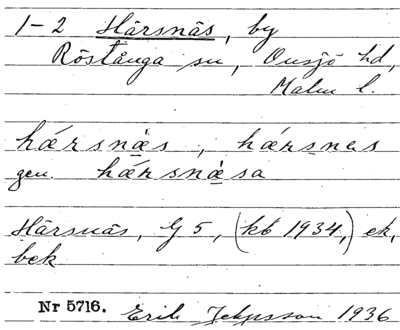 1-2 Härsnäs, by
Röstånga sn, Onsjö hd,
Malm l.
hǽrsnæ̀s, hǽrsnes
gen. hǽrsnæ̀sa
Härsnäs, G 5, (kb 1934,) ek,
bek
Nr 5716. Erik 1936